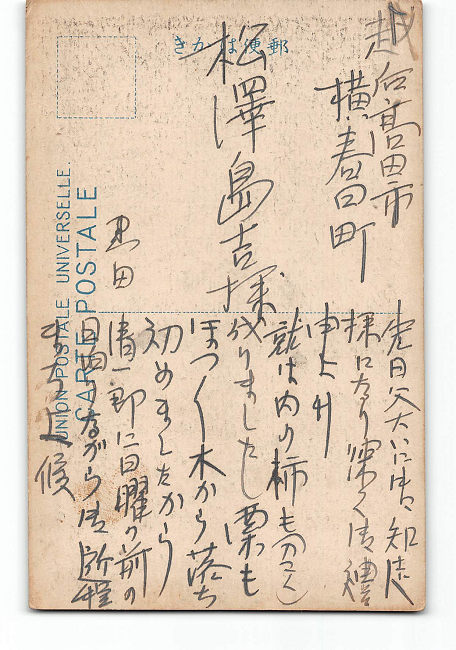 郵便はかき
UNION POSTALE UNIVERSELLE.
CARTE POSTALE
越后高田市
横春日町
松澤島吉様
黒田
先日父大いに御知走
様になり深く御禮
申上升
就は内の柿も
成りましたし栗も
ほつ〱木から落ち
初めましたから
清一郎に日曜の前の
日
ながら御
上候